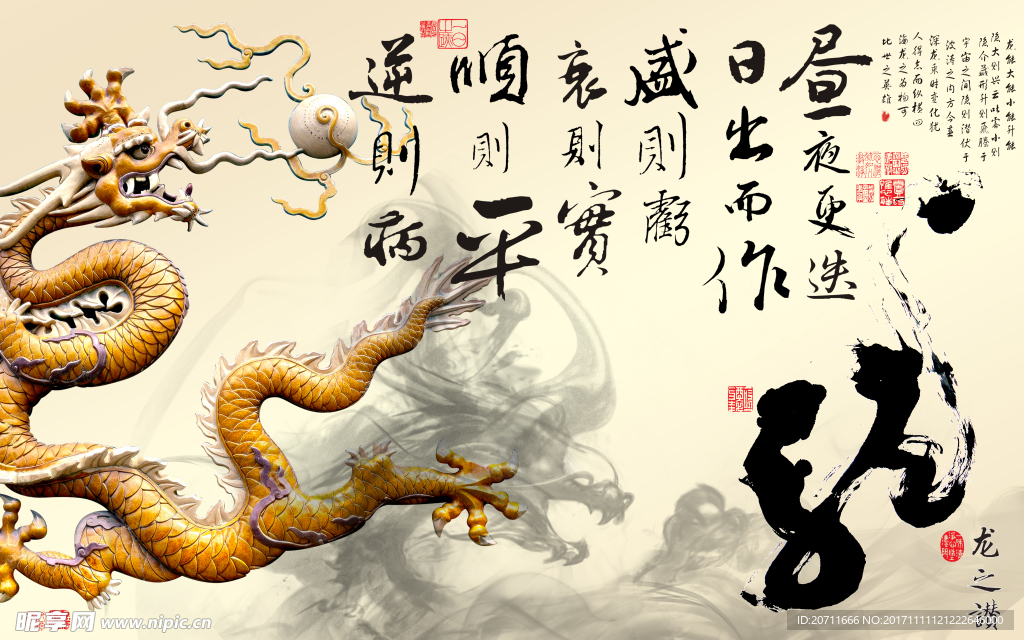 龙能大能小能升能
隐大则兴云吐雾小则
隐介藏形升则飞腾于
宇宙之间隐则潜伏于
波涛之内方今春
深龙乘时变化犹
人得志而纵横四
海龙之为物可
比世之英雄
昼夜更迭
日出而作
盛則虧
衰則實
順則平
逆則病
龍
龙之讃
昵享网 www.nipic.cn
ID:20711666 NO:20171111121222646000